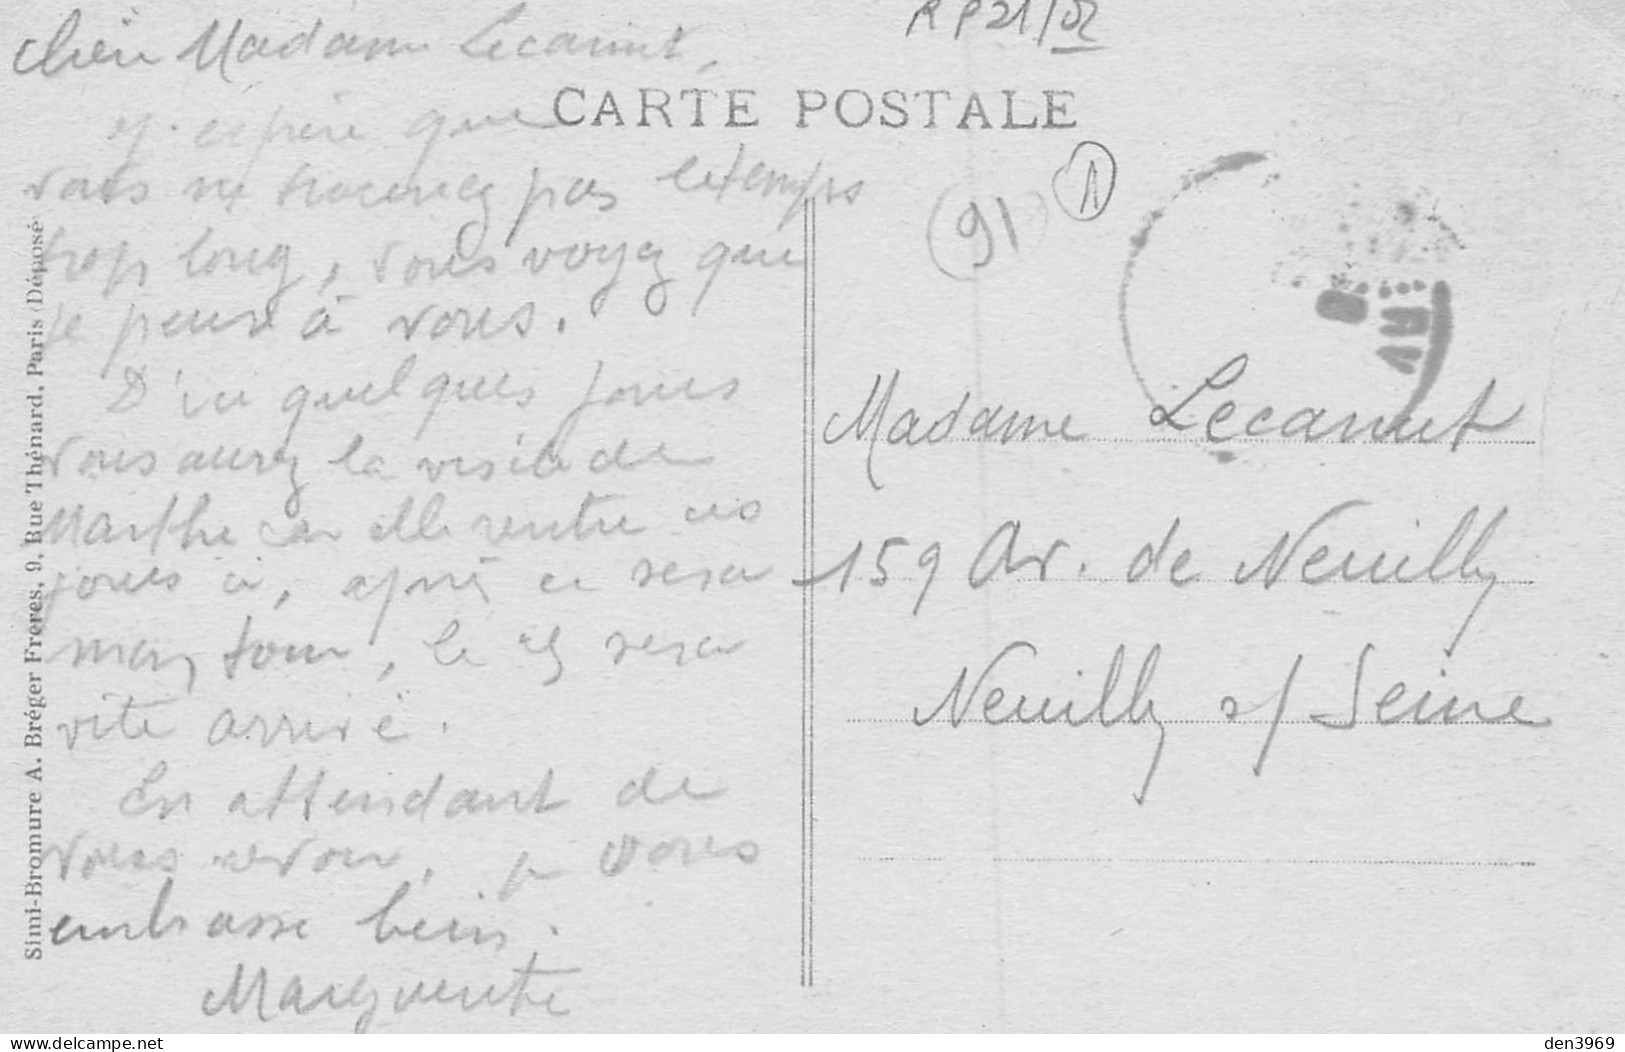 R P 21/02
Chère Madame Lecanut,
CARTE POSTALE
J'espère que
vous ne trouvez pas le temps
trop long, vous voyez que
je pense à vous.
D'ici quelques jours
vous aurez la visite de
Marthe car elle rentre ces
jours ci, après ce sera
mon tour, le 15 sera
vite arrivé.
En attendant de
vous revoir, je vous
embrasse bien.
Marguerite
91
1
Madame Lecanut
159 Av. de Neuilly
Neuilly s/ Seine
Simi-Bromure A. Bréger Frères, 9, Rue Thénard, Paris (Déposé
www.delcampe.net
den3969